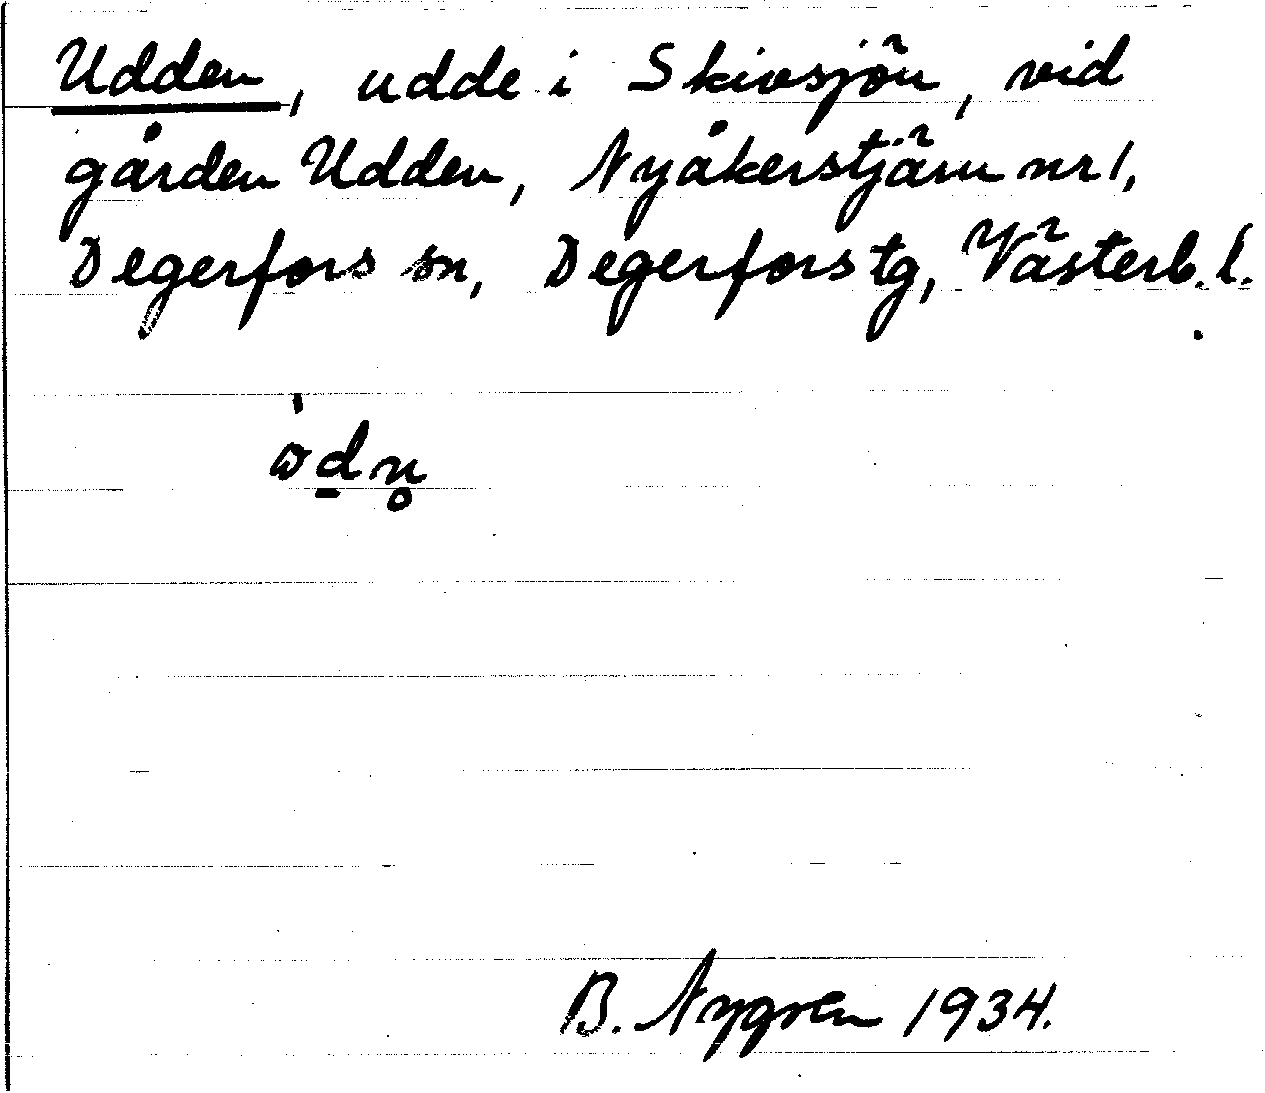 Udden, udde i Skivsjön, vid
gården Udden, Nyåkerstjärn nr 1,
Degerfors sn, Degerfors tg, Västerb. l.
B. Nygren 1934.